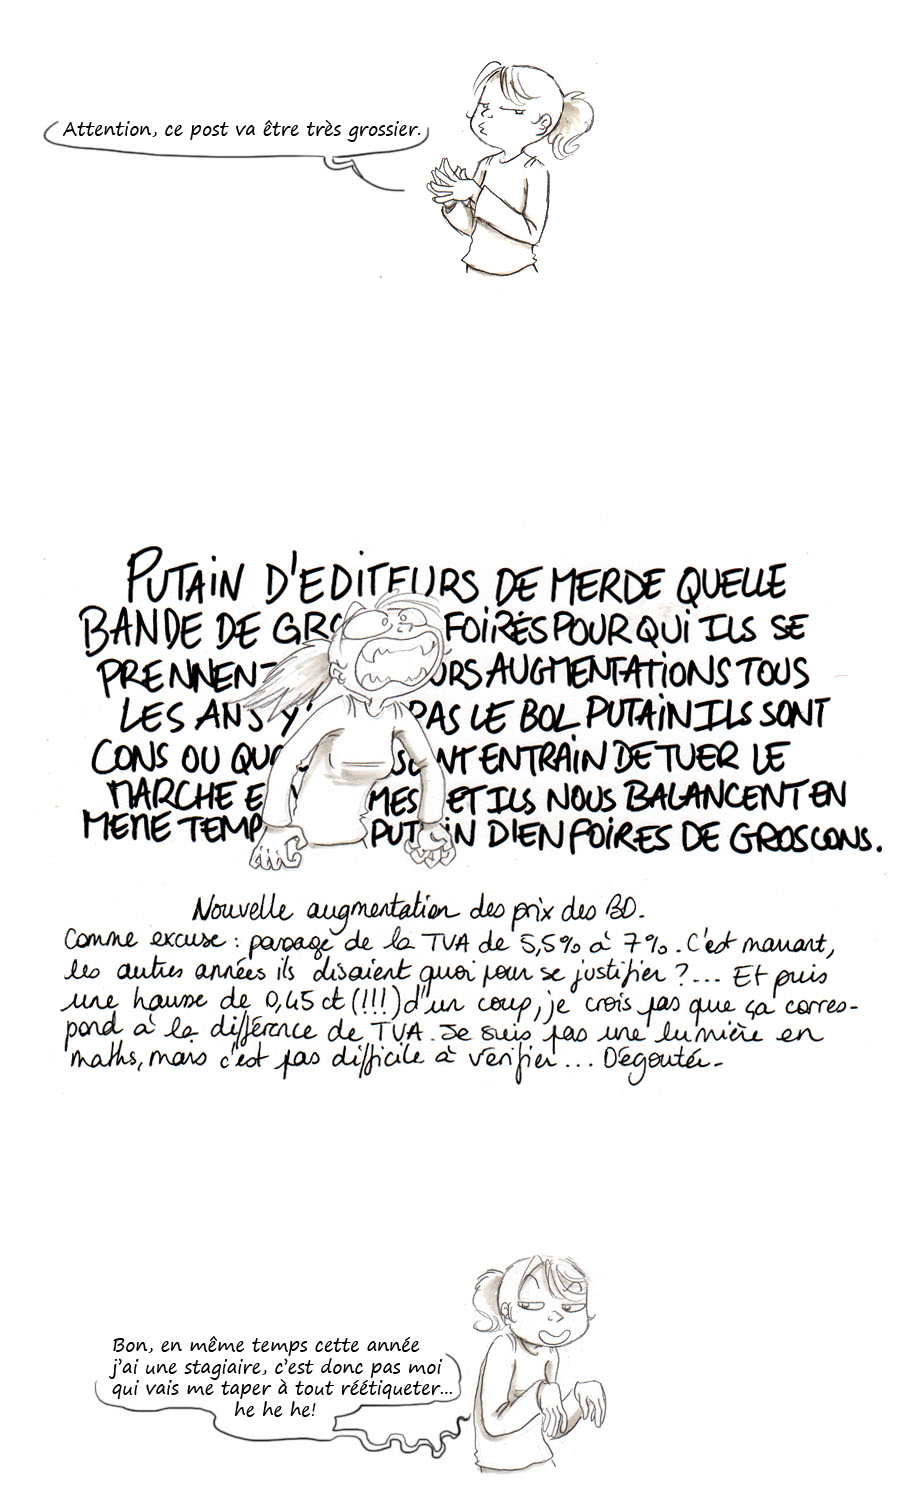 Attention, ce post va être très grossier.
PUTAIN D'EDITEURS DE MERDE QUELLE
BANDE DE GRO FOIRÉS POUR QUI ILS SE
PRENNENT URS AUGMENTATIONS TOUS
LES ANS Y' PAS LE BOL PUTAIN ILS SONT
CONS OU QUO SONT ENTRAIN DE TUER LE
MARCHE E MES ET ILS NOUS BALANCENT EN
MEME TEMP PUTAIN D'ENFOIRES DE GROS CONS.
Nouvelle augmentation des prix des BD.
Comme excuse : passage de la TVA de 5,5% à 7%. C'est marrant,
les autres années ils disaient quoi pour se justifier ?... Et puis
une hausse de 0,45 ct (!!!) d'un coup, je crois pas que ça corres-
pond à la différence de TVA. Je suis pas une lumière en
maths, mais c'est pas difficile à vérifier... Dégoutée.
Bon, en même temps cette année
j'ai une stagiaire, c'est donc pas moi
qui vais me taper à tout réétiqueter...
he he he!